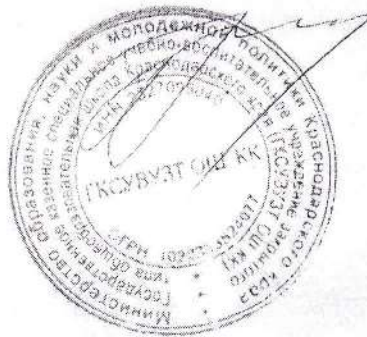 Министерство образования, науки и молодежной политики Краснодарского края
Государственное казенное специальное учебно-воспитательное учреждение закрытого
типа общеобразовательная школа Краснодарского края (ГКСУВУЗТ ОШ КК)
ИНН
ОГРН
ГКСУВУЗТ ОШ КК